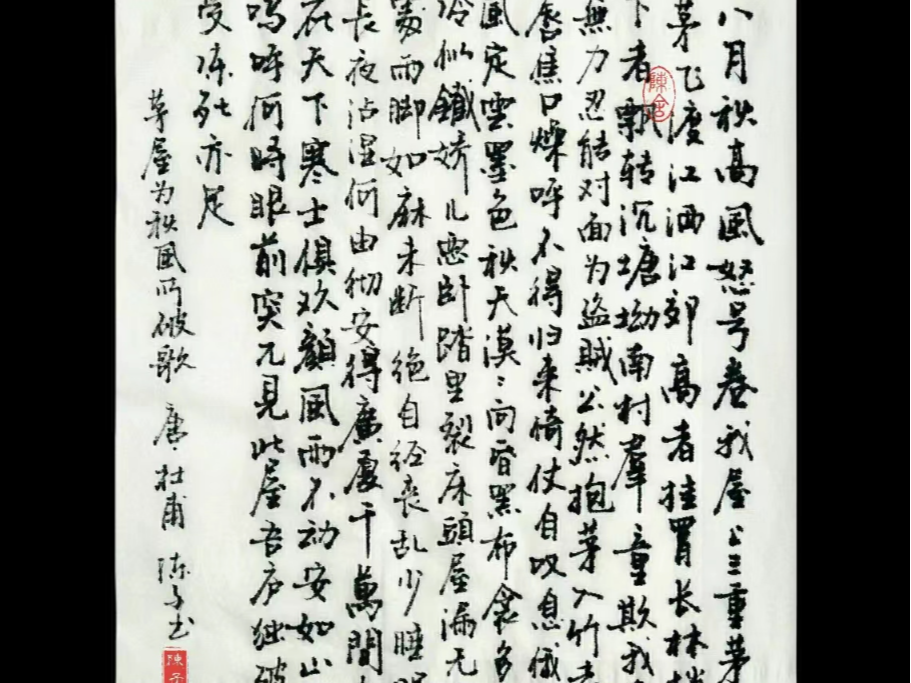 八月秋高风怒号卷我屋上三重茅
茅飞渡江洒江郊高者挂罥长林梢
下者飘转沉塘坳南村羣童欺我
無力忍能对面为盗贼公然抱茅入竹去
唇焦口燥呼不得归来倚仗自叹息俄
风定雲墨色秋天漠:向昏黑布衾多
冷似鐵娇儿恶卧踏里裂床頭屋漏无
處雨脚如麻未断绝自经丧乱少睡眠
长夜沾湿何由彻安得廣厦千萬間
庇天下寒士俱欢顏风雨不动安如山
嗚呼何時眼前突兀見此屋吾庐独破
受冻死亦足
茅屋为秋风所破歌 唐·杜甫 陈子书